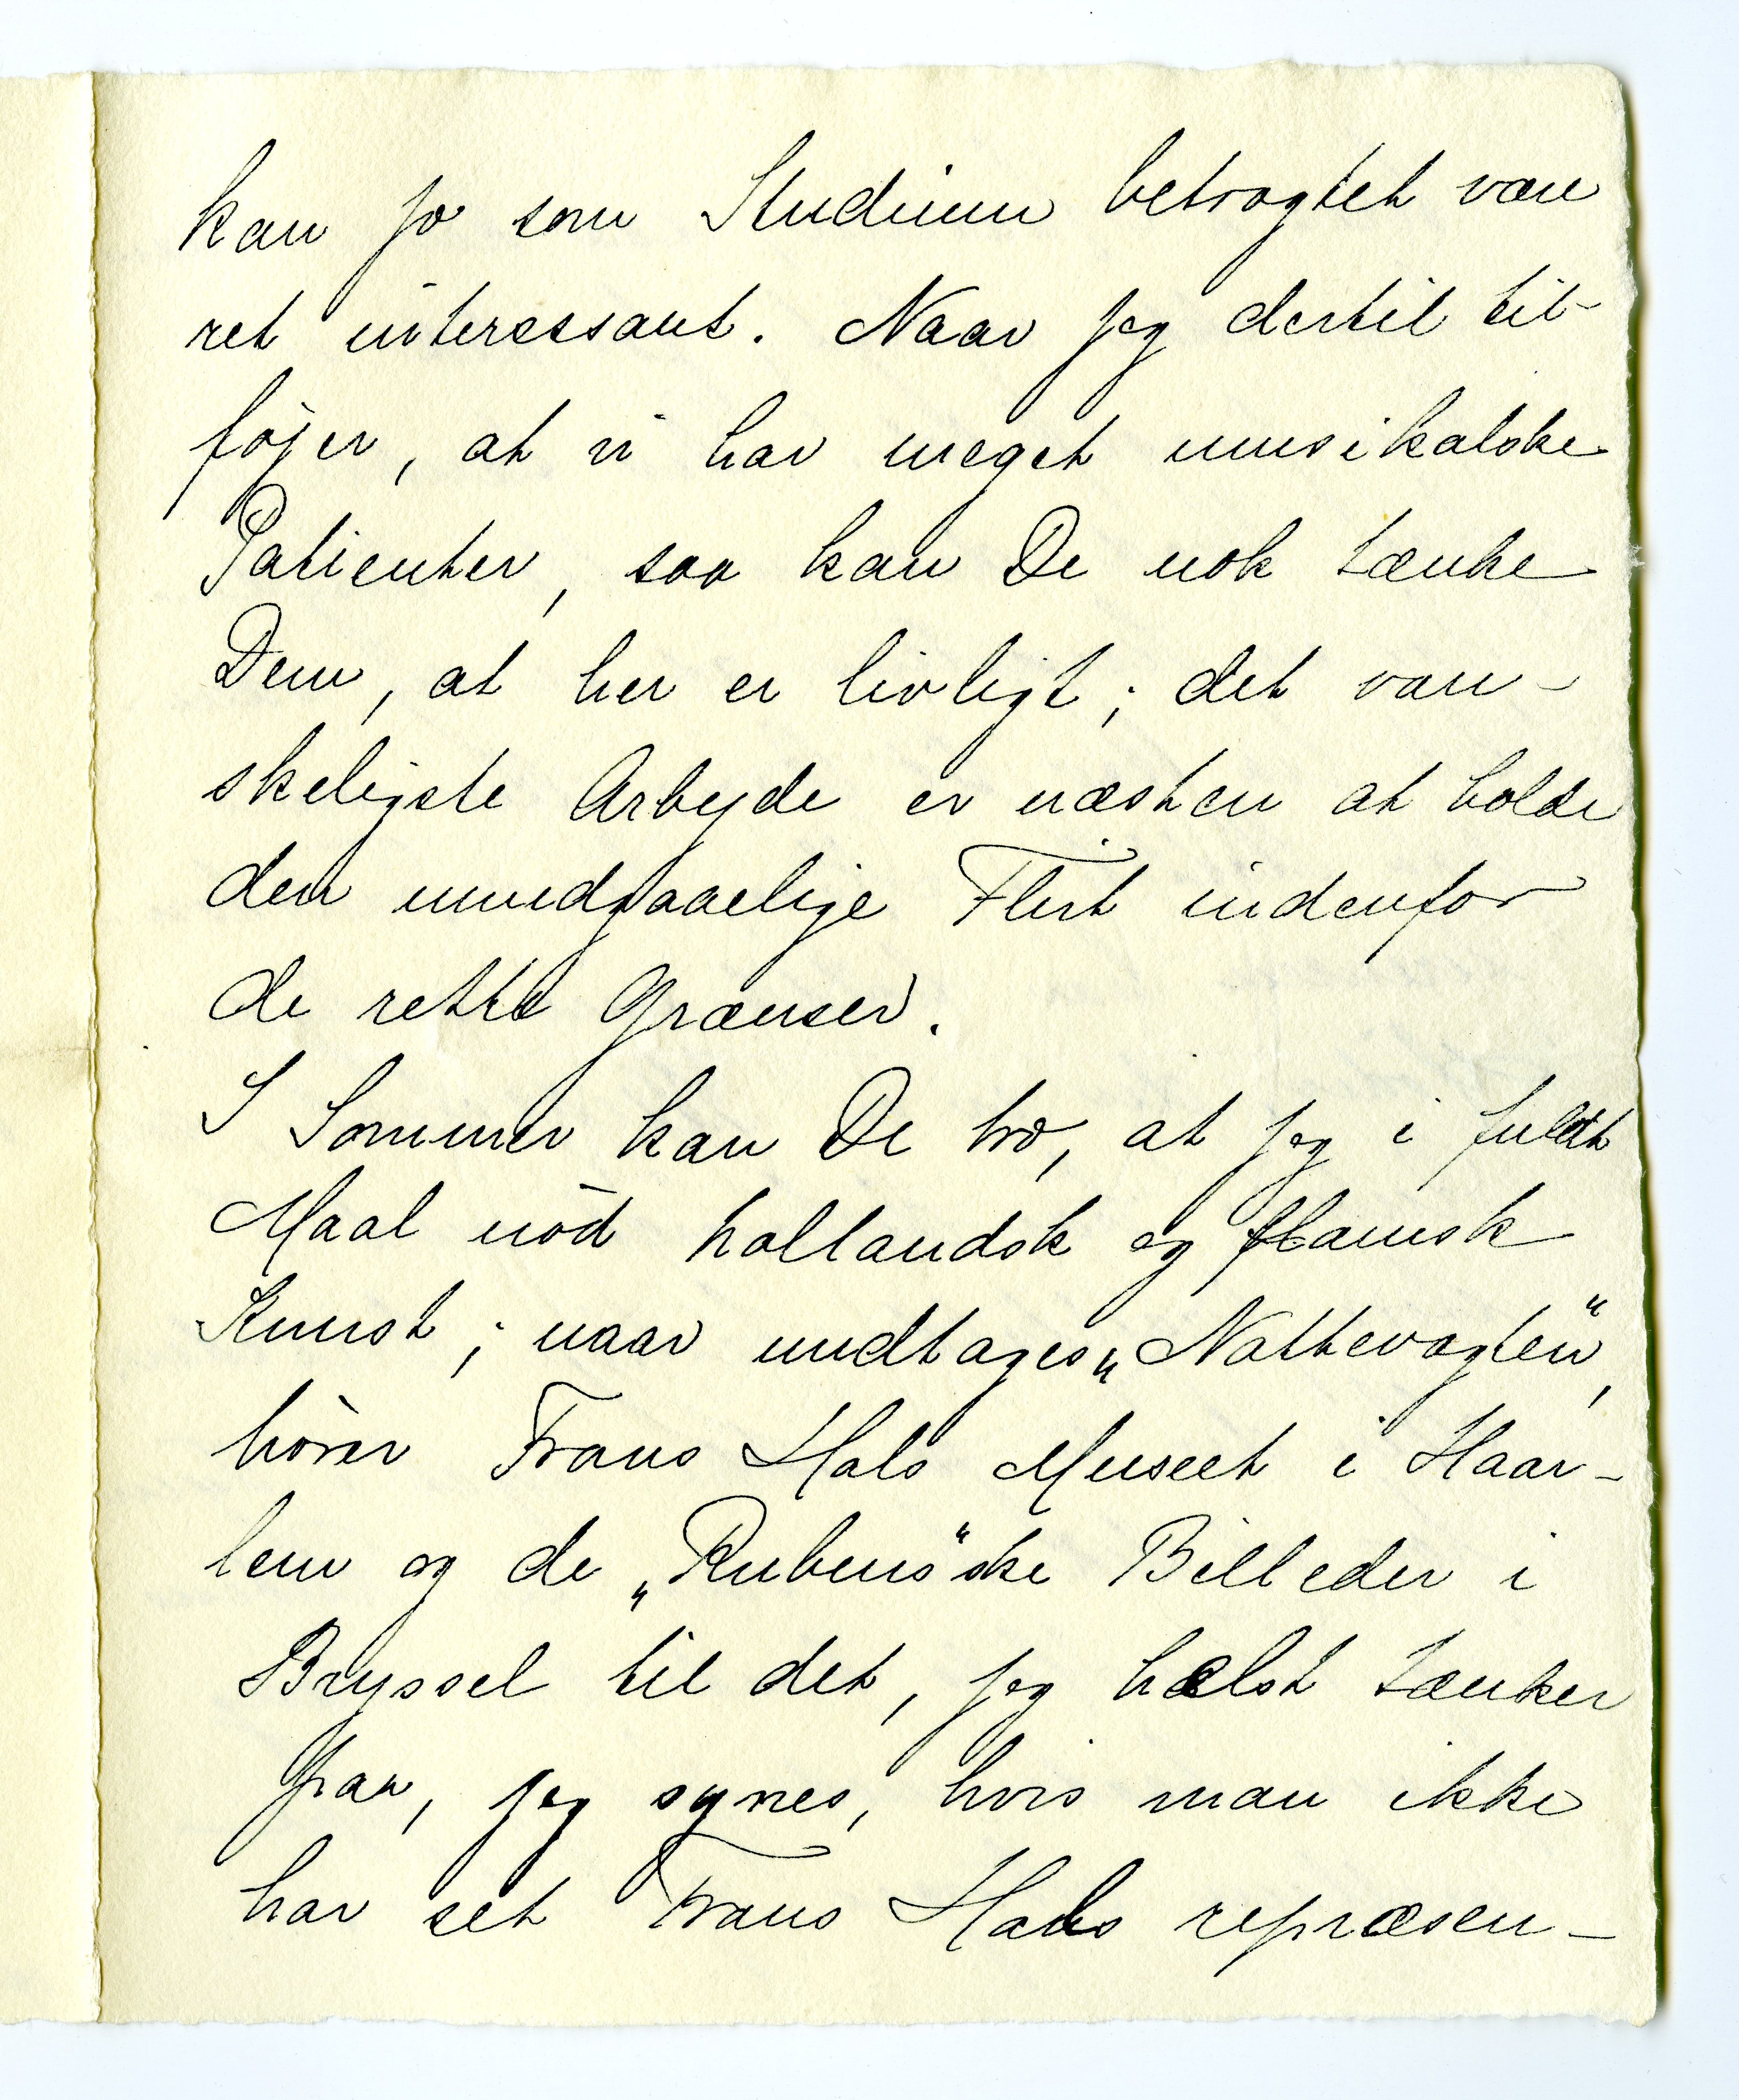 kan jo som Studium betragtet være
ret interessant. Naar jeg dertil til-
föjer, at vi har meget musikalske
Patienter, saa kan De nok tænke
Dem, at her er livligt; det van-
skeligste Arbejde er næsten at holde
den uundgaaelige Flirt indenfor
de rette Grænser.
I Sommer kan De tro, at jeg i fuldt
Maal nöd hollandsk og flamsk
Kunst; naar undtages „Nattevagten“,
hörer Frans Hals Museet i Haar-
lem og de „Rubens“ske Billeder i
Bryssel til det, jeg hælst tænker
paa, jeg synes, hvis man ikke
har set Frans Hals repræsen-